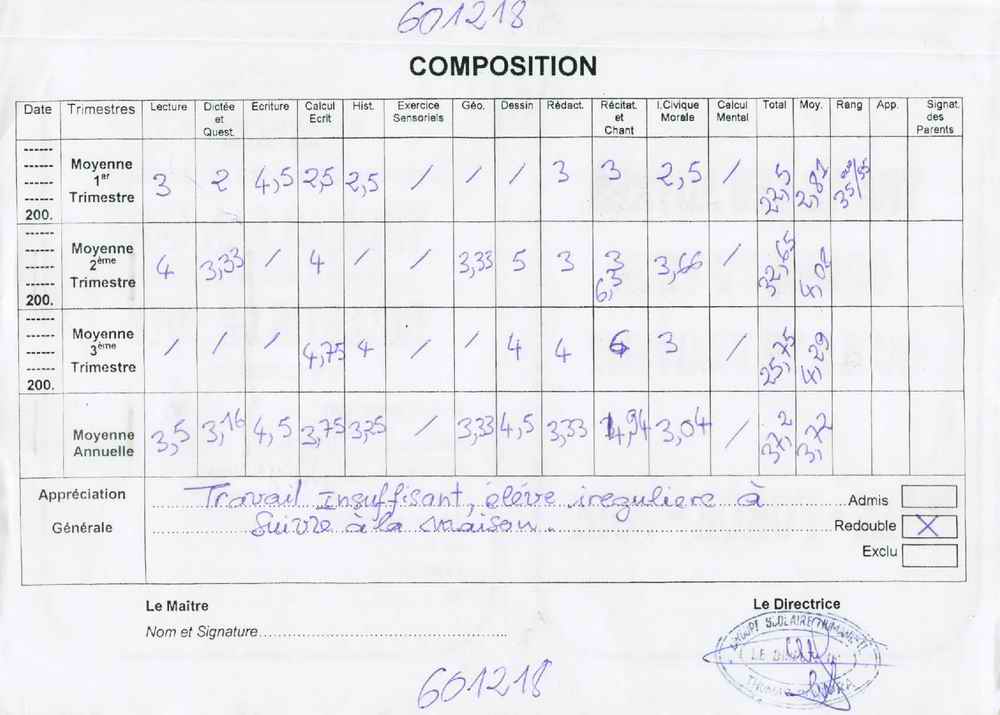 601218
COMPOSITION
Date Trimestres Lecture Dictée et Quest. Ecriture Calcul Ecrit Hist. Exercice Sensoriels Géo. Dessin Rédact. Récitat. et Chant I.Civique Morale Calcul Mental Total Moy. Rang App. Signat. des Parents
200. Moyenne 1er Trimestre 3 2 4,5 2,5 2,5 / / / 3 3 2,5 / 22,5 2,82
200. Moyenne 2ème Trimestre 4 3,33 / 4 / / 3,33 5 3 3 6,3 3,66 / 32,65 4,02
200. Moyenne 3ème Trimestre / / / 4,75 4 / / 4 4 6 3 / 25,75 4,29
Moyenne Annuelle 3,5 3,16 4,5 3,75 3,25 / 3,33 4,5 3,33 4,94 3,04 / 37,2 3,72
Appréciation Générale
Travail Insuffisant, élève ireguliere à
Suivre à la maison.
Admis
Redouble X
Exclu
Le Maître
Nom et Signature
Le Directrice
GROUPE SCOLAIRE
601218